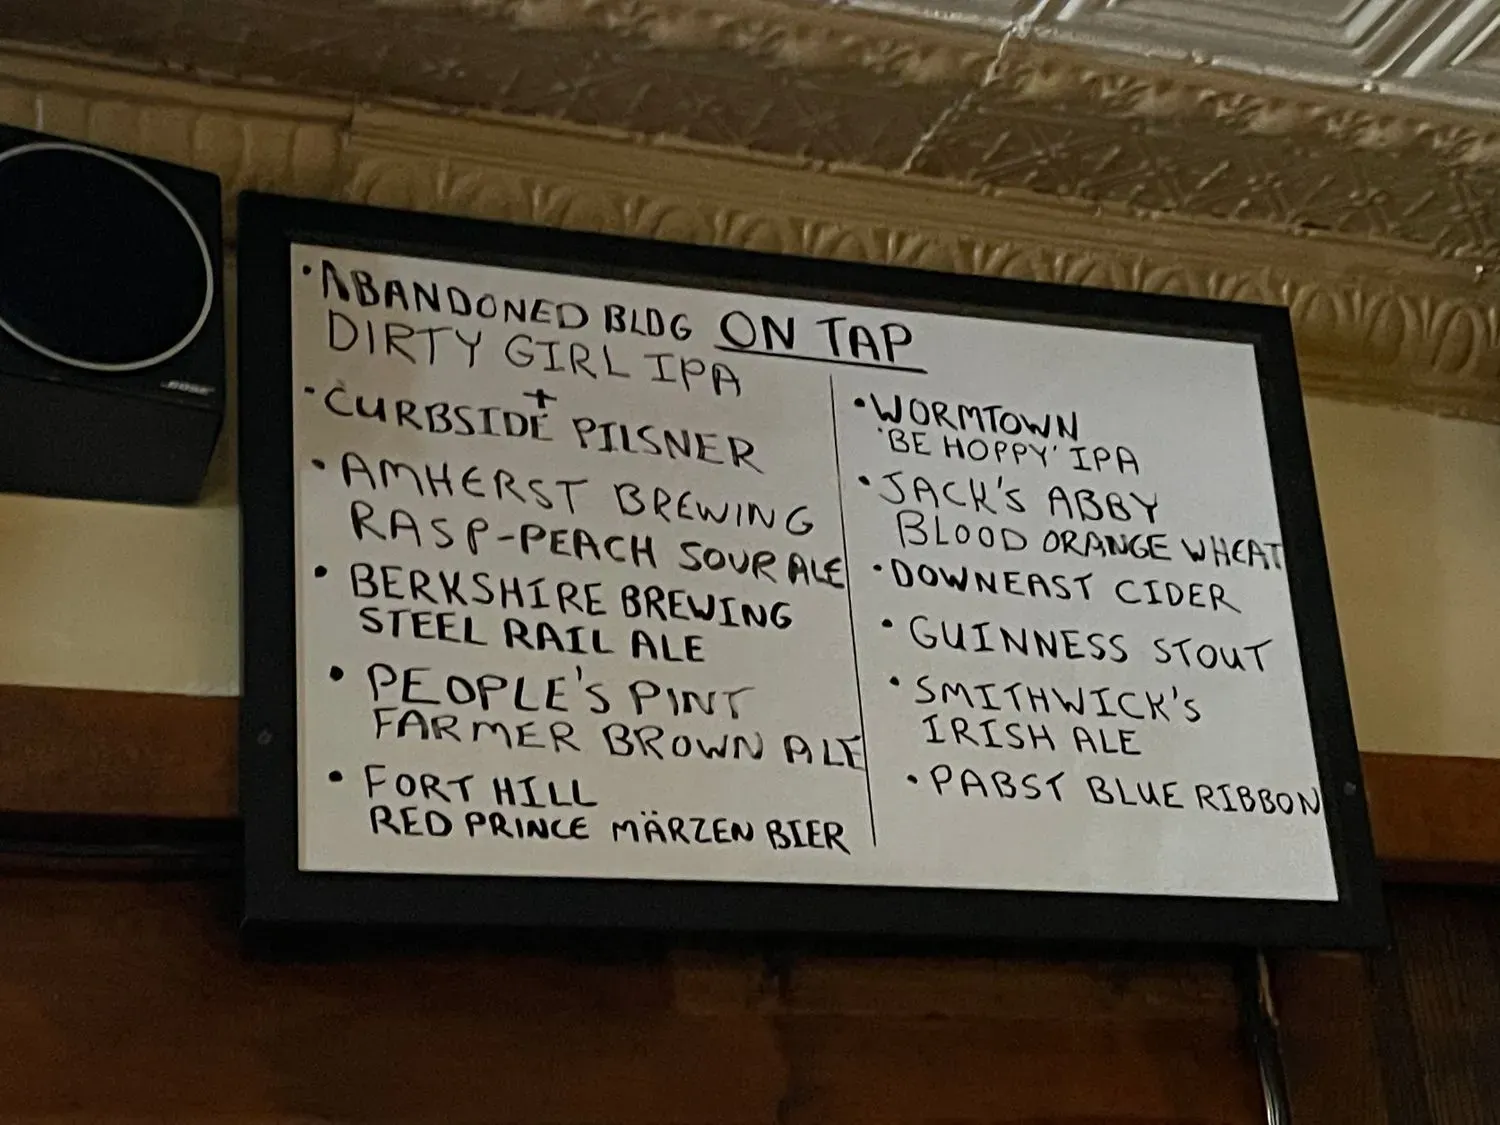 ON TAP
• ABANDONED BLDG
DIRTY GIRL IPA
+
• CURBSIDE PILSNER
• AMHERST BREWING
RASP-PEACH SOUR ALE
• BERKSHIRE BREWING
STEEL RAIL ALE
• PEOPLE'S PINT
FARMER BROWN ALE
• FORT HILL
RED PRINCE MÄRZEN BIER
• WORMTOWN
'BE HOPPY' IPA
• JACK'S ABBY
BLOOD ORANGE WHEAT
• DOWNEAST CIDER
• GUINNESS STOUT
• SMITHWICK'S
IRISH ALE
• PABST BLUE RIBBON
BOSE